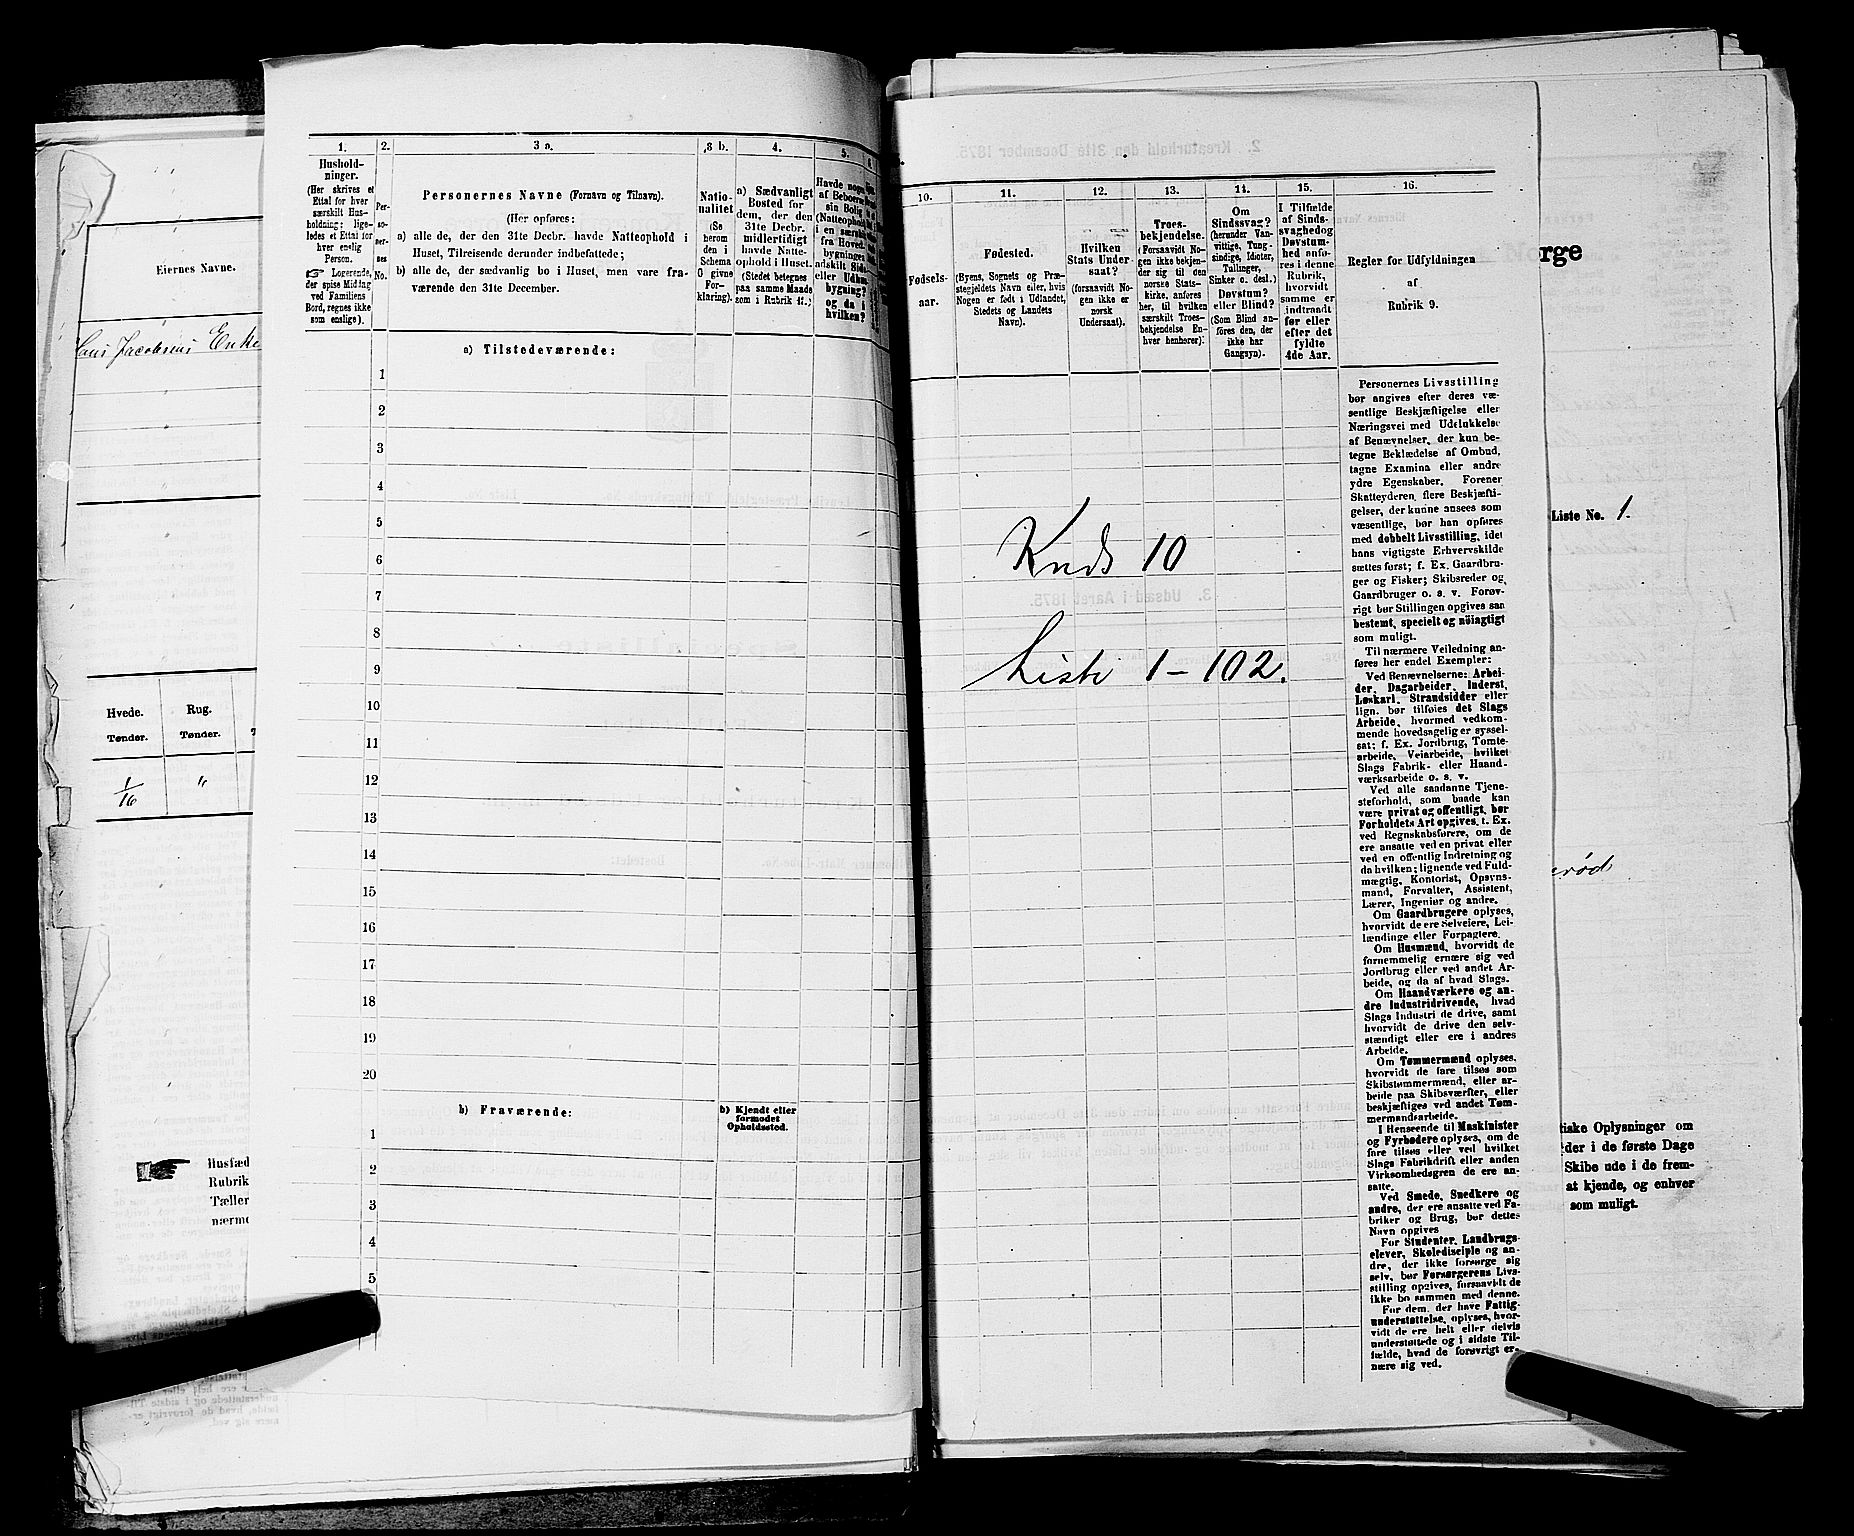 Eiernes Navne.
Hans Jacobsens Enke
Hvede.
Tønder.
Rug.
Tønder.
1/16
"
Husfæd
Rubrik
Tæller
nærme
1.
Hushold-
ninger.
(Her skrives et
Ettal for hver
særskilt Hus-
holdning; lige-
ledes et Ettal for
hver enslig
Person.
☞ Logerende,
der spise Middag
ved Familiens
Bord, regnes ikke
som enslige).
2.
Per-
so-
ner-
nes
No.
3 a.
Personernes Navne (Fornavn og Tilnavn).
(Her opføres:
a) alle de, der den 31te Decbr. havde Natteophold i
Huset, Tilreisende derunder indbefattede;
b) alle de, der sædvanlig bo i Huset, men vare fra-
værende den 31te December.
3 b.
Natio-
nalitet
(Se
herom
den i
Schema
0 givne
For-
klaring).
4.
a) Sædvanligt
Bosted for
dem, der den
31te Decbr.
midlertidigt
havde Natte-
ophold i Huset.
(Stedet betegnes
paa samme Maade
som i Rubrik 11.)
5.
Havde nogen
af Beboerne
sin Bolig
(Natteophold)
i en særskilt
fra Hoved-
bygningen
adskilt Side-
eller Udhus-
bygning?
og da i
hvilken?
6.
a) Tilstedeværende:
1
2
3
4
5
6
7
8
9
10
11
12
13
14
15
16
17
18
19
20
b) Fraværende:
b) Kjendt eller
formodet
Opholdssted.
1
2
3
4
5
10.
Fødsels-
aar.
11.
Fødested.
(Byens, Sognets og Præ-
stegjeldets Navn eller, hvis
Nogen er født i Udlandet,
Stedets og Landets
Navn).
12.
Hvilken
Stats Under-
saat?
(forsaavidt No-
gen ikke er
norsk
Undersaat).
13.
Troes-
bekjendelse.
(Forsaavidt No-
gen ikke bekjen-
der sig til den
norske Stats-
kirke, anføres
her, til hvilken
særskilt Troes-
bekjendelse En-
hver henhører):
14.
Om
Sindssvag?
(herunder Van-
vittige, Tung-
sindige, Idioter,
Tullinger,
Sinker o. desl.)
Døvstum?
eller Blind?
(Som Blind an-
føres den, der
ikke har
Gangsyn).
15.
I Tilfælde
af Sinds-
svaghedog
Døvstum-
hed anfø-
res i denne
Rubrik,
hvorvidt
samme er
indtraadt
før eller
efter det
fyldte
4de Aar.
16.
Regler for Udfyldningen
af
Rubrik 9.
Krds 10
Liste 1 - 102.
Personernes Livsstilling
bør angives efter deres væ-
sentlige Beskjæftigelse eller
Næringsvei med Udelukkelse
af Benævnelser, der kun be-
tegne Beklædelse af Ombud,
tagne Examina eller andre
ydre Egenskaber. Forener
Skatteyderen flere Beskjæfti-
gelser, der kunne ansees som
væsentlige, bør han opføres
med dobbelt Livsstilling, idet
hans vigtigste Erhvervskilde
sættes først; f. Ex. Gaardbru-
ger og Fisker; Skibsreder og
Gaardbruger o. s. v. Forøv-
rigt bør Stillingen opgives saa
bestemt, specielt og nöiagtigt
som muligt.
Til nærmere Veiledning an-
føres her endel Exempler:
Ved Benævnelserne: Arbei-
der, Dagarbeider, Inderst,
Løskarl, Strandsidder eller
lign. bør tilføies det Slags
Arbeide, hvormed vedkom-
mende hovedsagelig er syssel-
sat; f. Ex. Jordbrug, Tomte-
arbeide, Veiarbeide, hvilket
Slags Fabrik- eller Haand-
værksarbeide o. s. v.
Ved alle saadanne Tjene-
steforhold, som baade kan
være privat og offentligt, bør
Forholdets Art opgives, t. Ex.
ved Regnskabsførere, om de
ere ansatte ved en privat eller
ved en offentlig Indretning og
da hvilken; lignende ved Fuld-
mægtig, Kontorist, Opsyns-
mand, Forvalter, Assistent,
Lærer, Ingeniør og andre.
Om Gaardbrugere oplyses,
hvorvidt de ere Selveiere, Lei-
lændinge eller Forpagtere.
Om Husmænd, hvorvidt de
fornemmelig ernære sig ved
Jordbrug eller ved andet Ar-
beide, og da af hvad Slags.
Om Haandværkere og an-
dre Industridrivende, hvad
Slags Industri de drive, samt
hvorvidt de drive den selv-
stændigt eller ere i andres
Arbeide.
Om Tømmermænd oplyses,
hvorvidt de fare tilsøs som
Skibstømmermænd, eller ar-
beide paa Skibsværfter, eller
beskjæftiges ved andet Tøm-
mermandsarbeide.
I Henseende til Maskinister
og Fyrbødere oplyses, om de
fare tilsøs eller ved hvilket
Slags Fabrikdrift eller anden
Virksomhedsgren de ere an-
satte.
Ved Smede, Snedkere og
andre, der ere ansatte ved Fa-
briker og Brug, bør dettes
Navn opgives
For Studenter, Landbrugs-
elever, Skoledisciple og an-
dre, der ikke forsørge sig
selv, bør Forsørgerens Livs-
stilling opgives, forsaavidt de
ikke bo sammen med denne.
For dem, der have Fattig-
understøttelse, oplyses, hvor-
vidt de ere helt eller delvis
understøttede og i sidste Til-
fælde, hvad de forøvrigt er-
nære sig ved.
orge
Liste No. 1.
erød
tiske Oplysninger om
der i de første Dage
Skibe ude i de frem-
at kjende, og enhver
som muligt.